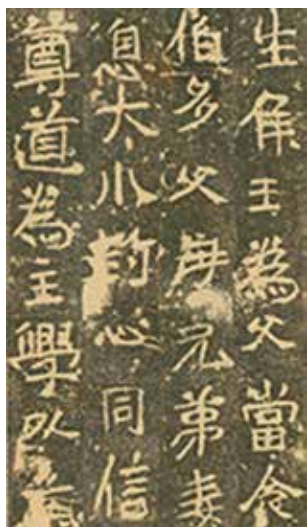 生侯王為父當令
伯多父母兄弟妻
息大小齊心同信
尊道為主學以